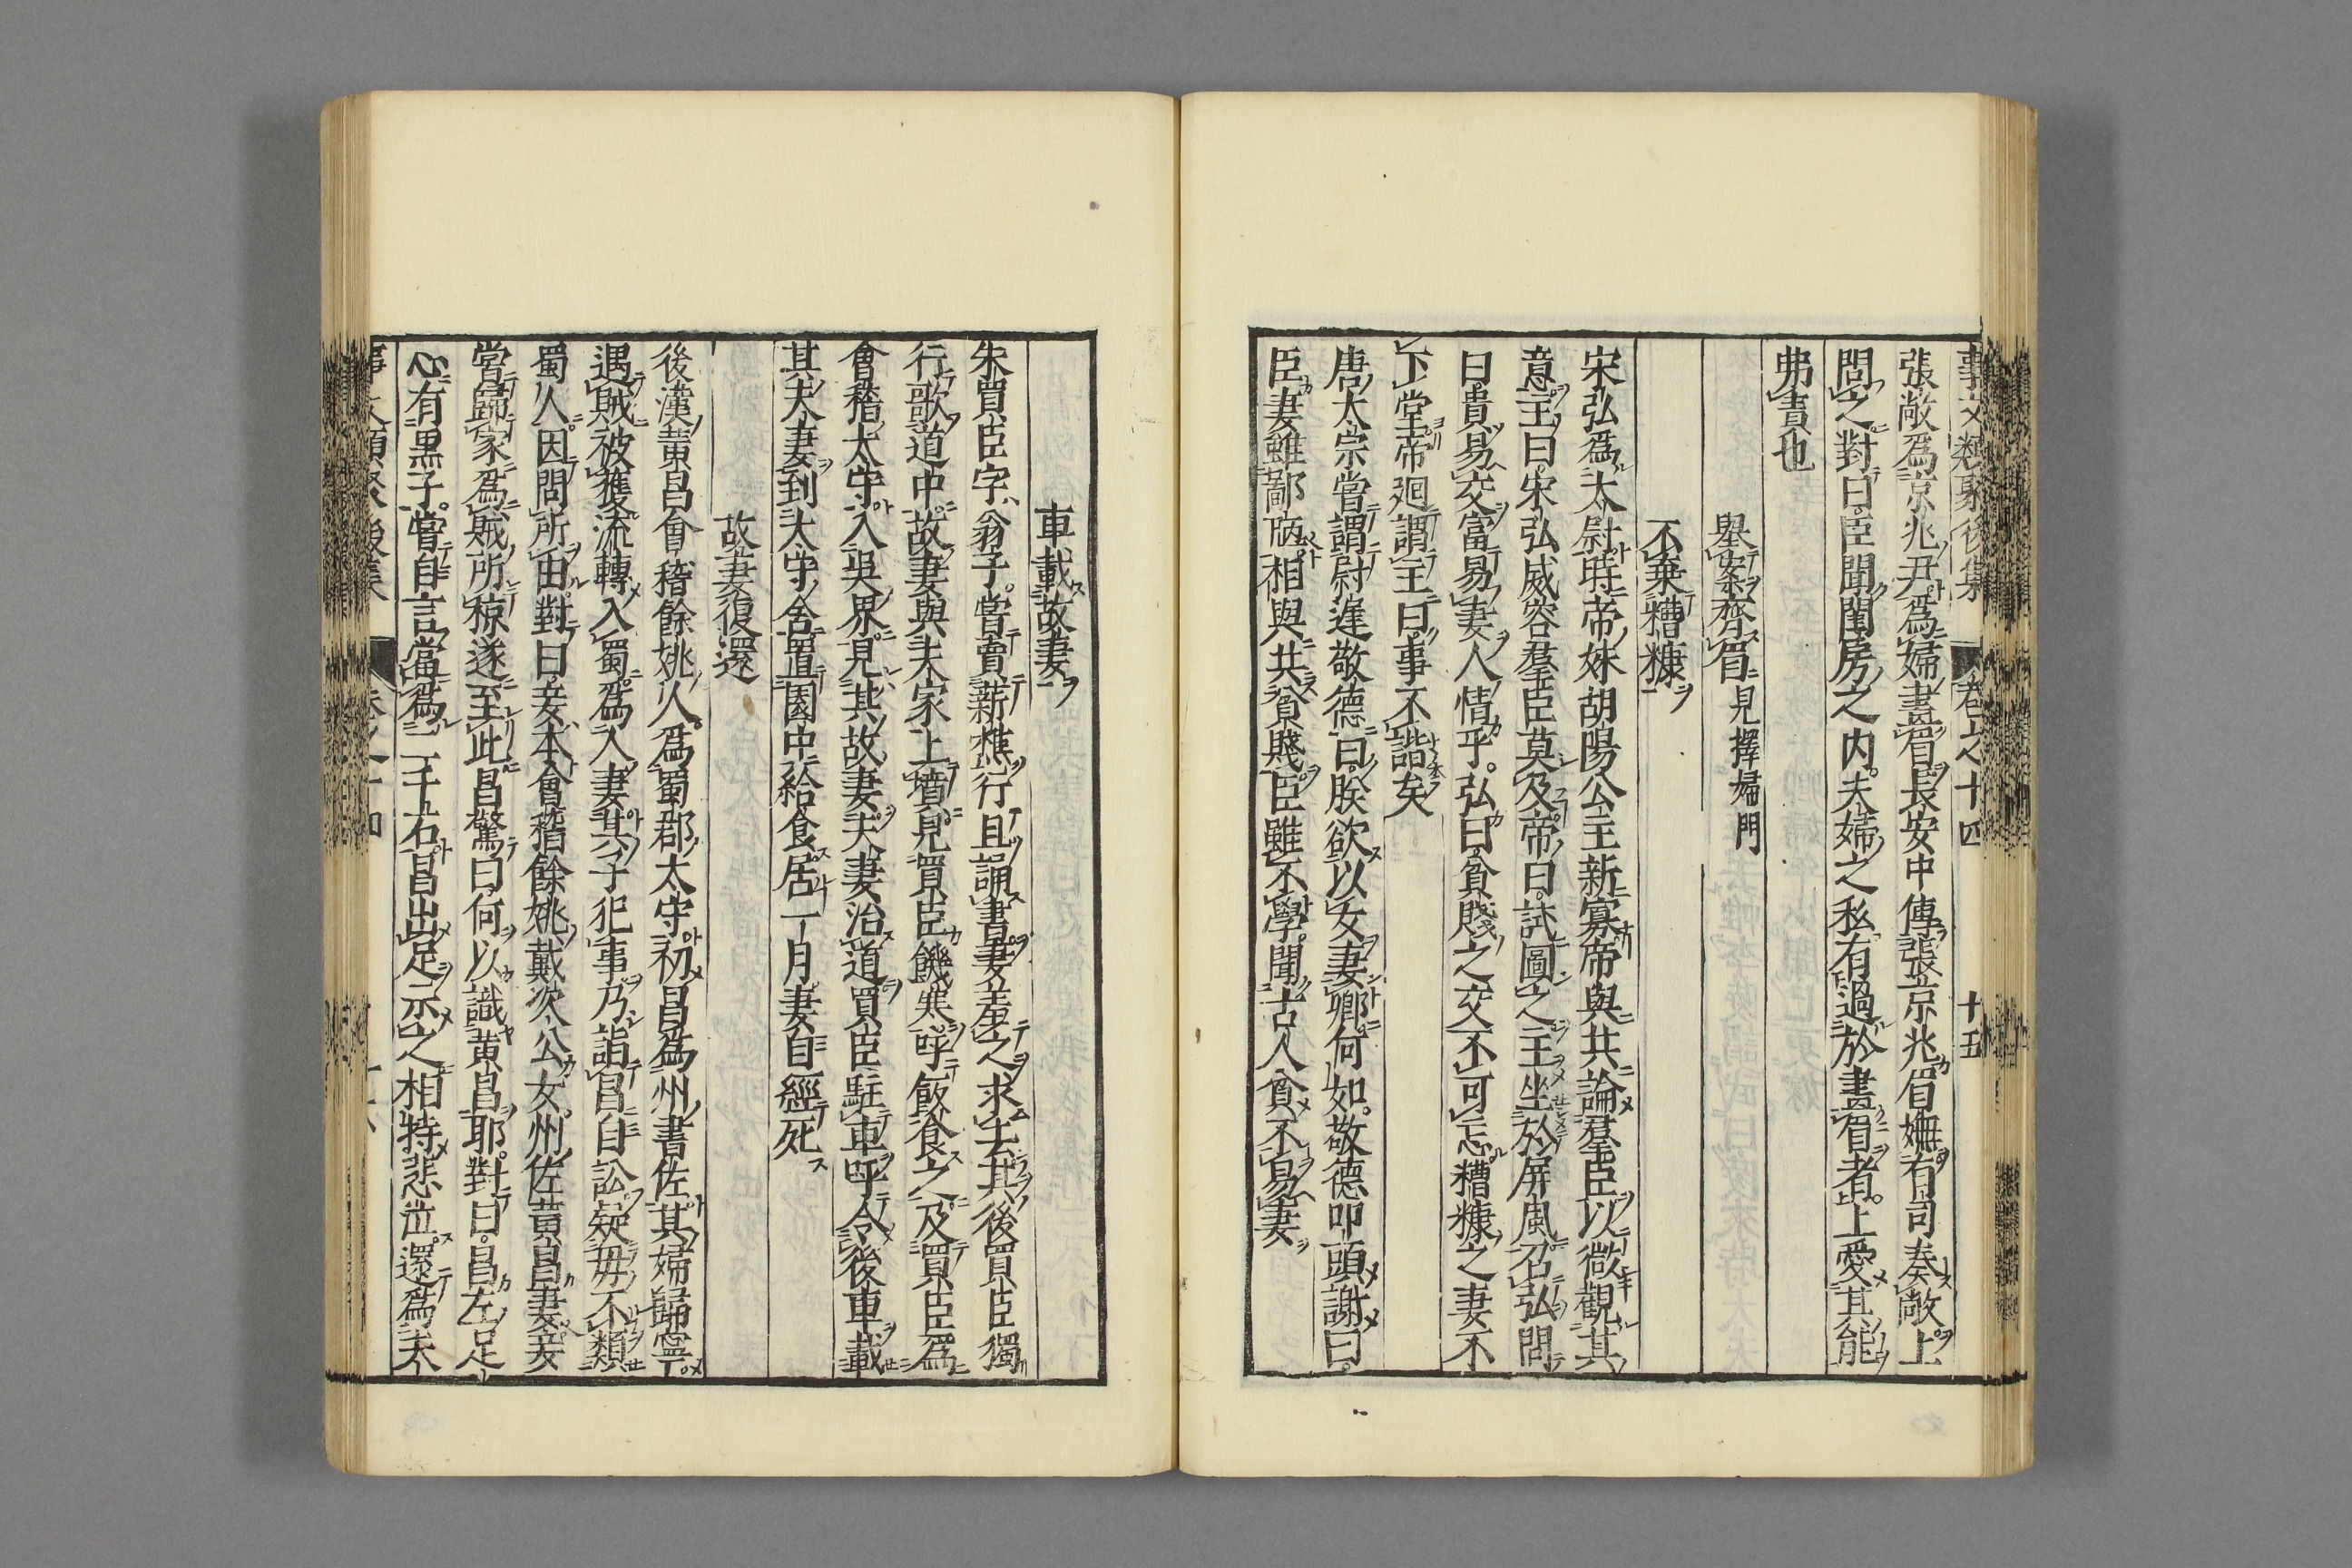 事文類聚後集 卷之十四 十五
張敞爲京兆尹爲婦畫眉長安中傳張京兆眉嫵有司奏敞上
問之對曰臣聞閨房之内夫婦之私有過於畫眉者上愛其能
弗責也
舉案齊眉見擇婦門
不棄糟糠
宋弘爲太尉時帝姊胡陽公主新寡帝與共論羣臣以微觀其
意主曰宋弘威容羣臣莫及帝曰試圖之主坐於屏風召弘問
曰貴易交富易妻人情乎弘曰貧賤之交不可忘糟糠之妻不
下堂帝廻謂主曰事不諧矣
唐太宗嘗謂尉遲敬德曰朕欲以女妻卿何如敬德叩頭謝曰
臣妻雖鄙陋相與共貧賤臣雖不學聞古人貧不易妻
車載故妻
朱買臣字翁子嘗賣薪樵行且誦書妻羞之求去其後買臣獨
行歌道中故妻與夫家上墳見買臣饑寒呼飯食之及買臣爲
會稽太守入吳界見其故妻夫妻治道買臣駐車呼令後車載
其夫妻到太守舍置園中給食居一月妻自經死
故妻復還
後漢黄昌會稽餘姚人爲蜀郡太守初昌爲州書佐其婦歸寧
遇賊被獲流轉入蜀爲人妻其子犯事乃詣昌自訟疑毋不類
蜀人因問所由對曰妾本會稽餘姚戴次公女州佐黄昌妻妾
嘗歸家爲賊所掠遂至此昌驚曰何以識黄昌耶對曰昌左足
心有黒子嘗自言當爲二千石昌出足示之相持悲泣還爲夫
事文類聚後集 卷之十四